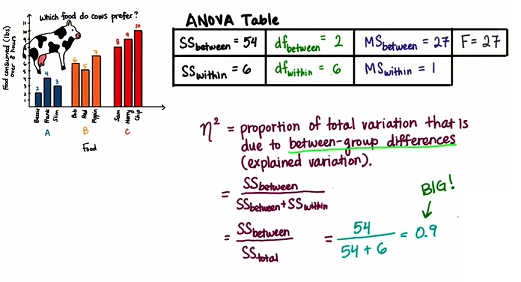 Which food do cows prefer?
Food consumed (lbs)
over 8 hours
2
4
3
6
5
7
8
9
10
Bessie
Frank
Slim
Bob
Red
Pippin
Sam
Harry
Chip
A
B
C
Food
ANOVA Table
SS between = 54
df between = 2
MS between = 27
F = 27
SS within = 6
df within = 6
MS within = 1
η² = proportion of total variation that is
due to between-group differences
(explained variation).
= SS between / SS between + SS within
BIG!
= SS between / SS total = 54 / 54 + 6 = 0.9